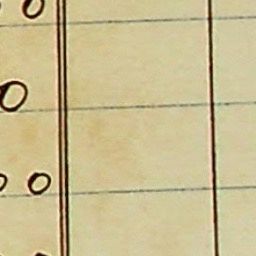 0
0
0 0